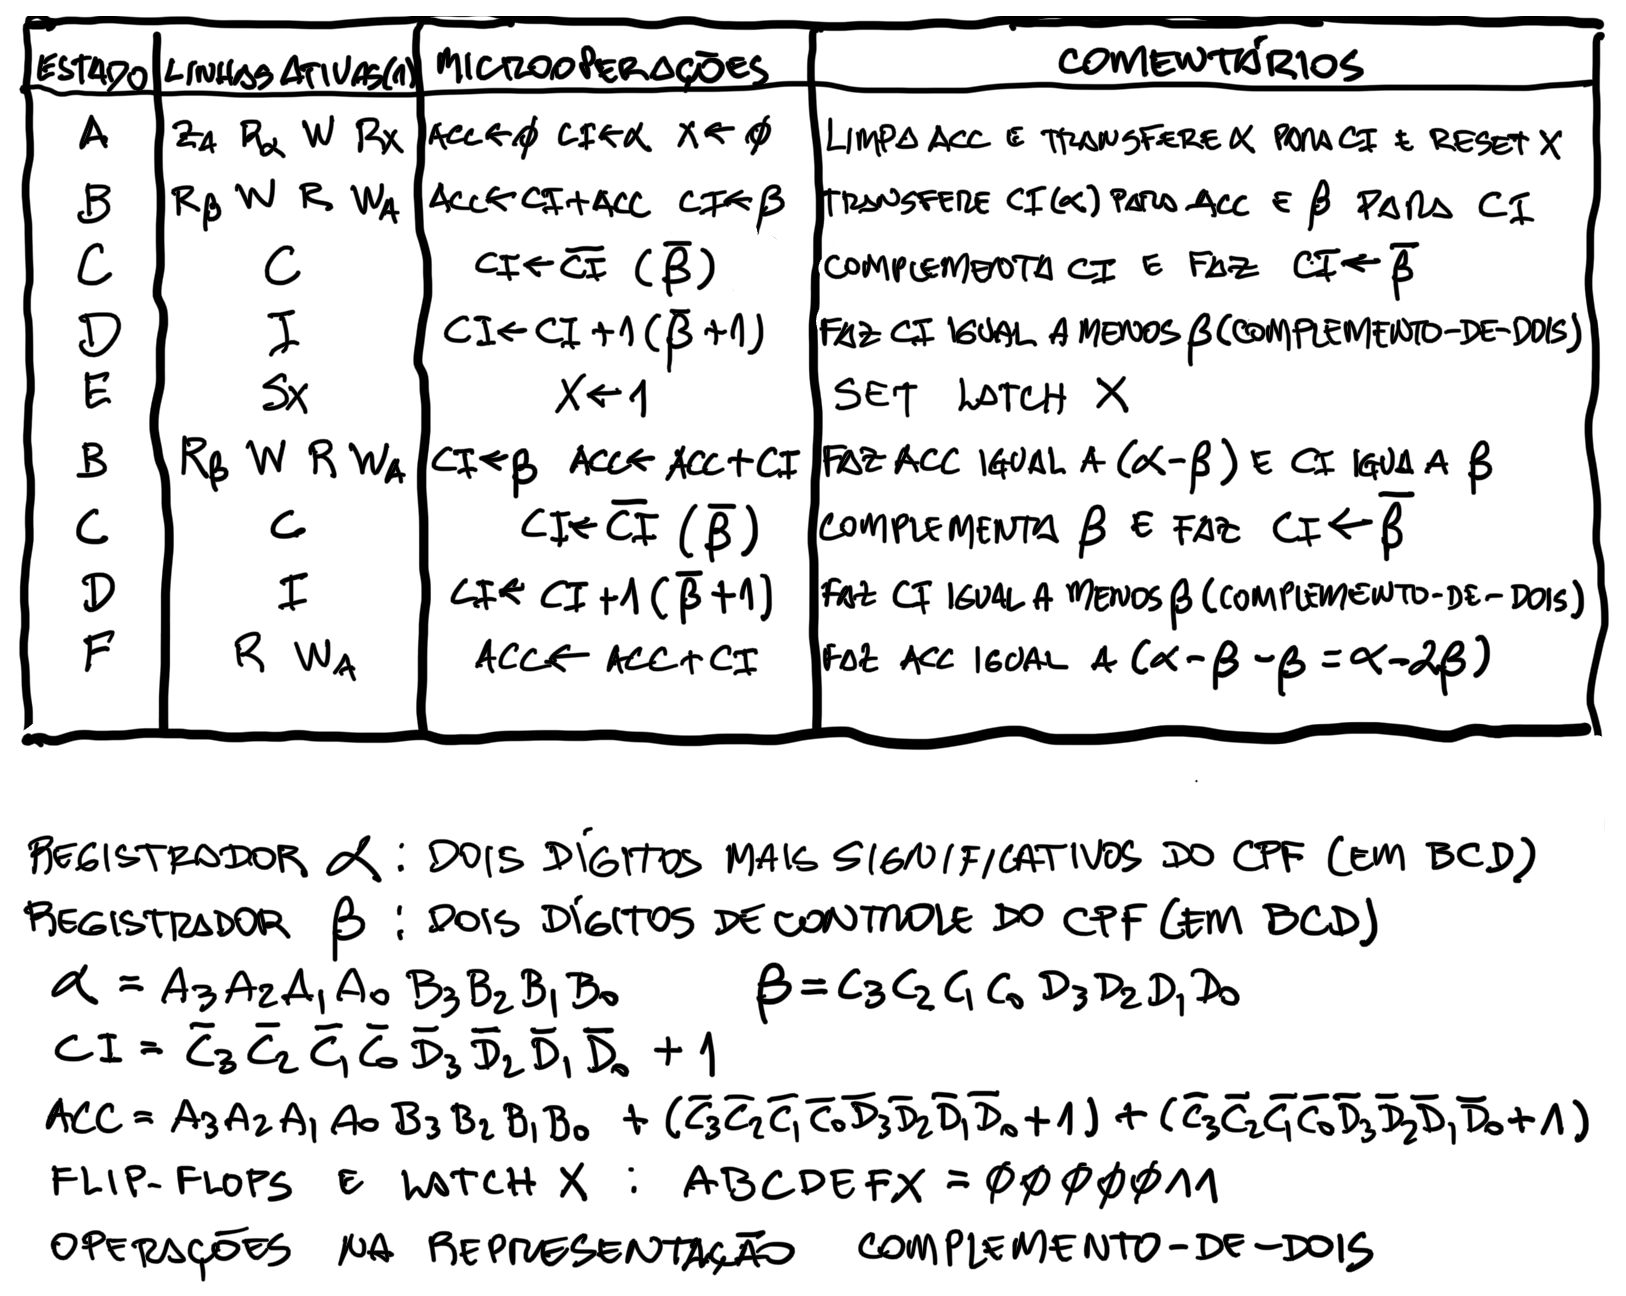 ESTADO LINHAS ATIVAS(1) MICROOPERAÇÕES COMENTÁRIOS
A Z_A R_α W R_X ACC←ϕ CI←α X←ϕ LIMPA ACC E TRANSFERE α PARA CI E RESET X
B R_β W R W_A ACC←CI+ACC CI←β TRANSFERE CI(α) PARA ACC E β PARA CI
C C CI←C̅I̅ (β̅) COMPLEMENTA CI E FAZ CI←β̅
D I CI←CI+1(β̅+1) FAZ CI IGUAL A MENOS β(COMPLEMENTO-DE-DOIS)
E SX X←1 SET LATCH X
B R_β W R W_A CI←β ACC←ACC+CI FAZ ACC IGUAL A (α-β) E CI IGUA A β
C C CI←C̅I̅ (β̅) COMPLEMENTA β E FAZ CI←β̅
D I CI←CI+1(β̅+1) FAZ CI IGUAL A MENOS β(COMPLEMENTO-DE-DOIS)
F R W_A ACC←ACC+CI FAZ ACC IGUAL A (α-β-β=α-2β)
REGISTRADOR α: DOIS DÍGITOS MAIS SIGNIFICATIVOS DO CPF (EM BCD)
REGISTRADOR β: DOIS DÍGITOS DE CONTROLE DO CPF (EM BCD)
α = A₃A₂A₁A₀B₃B₂B₁B₀ β=C₃C₂C₁C₀D₃D₂D₁D₀
CI = C̅₃C̅₂C̅₁C̅₀D̅₃D̅₂D̅₁D̅₀ + 1
ACC = A₃A₂A₁A₀B₃B₂B₁B₀ + (C̅₃C̅₂C̅₁C̅₀D̅₃D̅₂D̅₁D̅₀+1) + (C̅₃C̅₂C̅₁C̅₀D̅₃D̅₂D̅₁D̅₀+1)
FLIP-FLOPS E LATCH X : ABCDEFX = ϕϕϕϕϕ11
OPERAÇÕES NA REPRESENTAÇÃO COMPLEMENTO-DE-DOIS